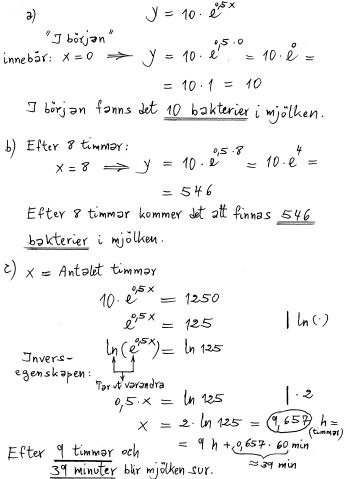 a) y = 10 · e^0,5x
"I början"
innebär: x = 0 ⟹ y = 10 · e^0,5·0 = 10 · e^0 =
= 10 · 1 = 10
I början fanns det 10 bakterier i mjölken.
b) Efter 8 timmar:
x = 8 ⟹ y = 10 · e^0,5·8 = 10 · e^4 =
= 546
Efter 8 timmar kommer det att finnas 546
bakterier i mjölken.
c) x = Antalet timmar
10 · e^0,5x = 1250
e^0,5x = 125 | ln(·)
Invers-
egenskapen: ln(e^0,5x) = ln 125
Tar ut varandra
0,5 · x = ln 125 | · 2
x = 2 · ln 125 = 9,657 h =
(timmar)
= 9 h + 0,657 · 60 min
≈ 39 min
Efter 9 timmar och
39 minuter blir mjölken sur.